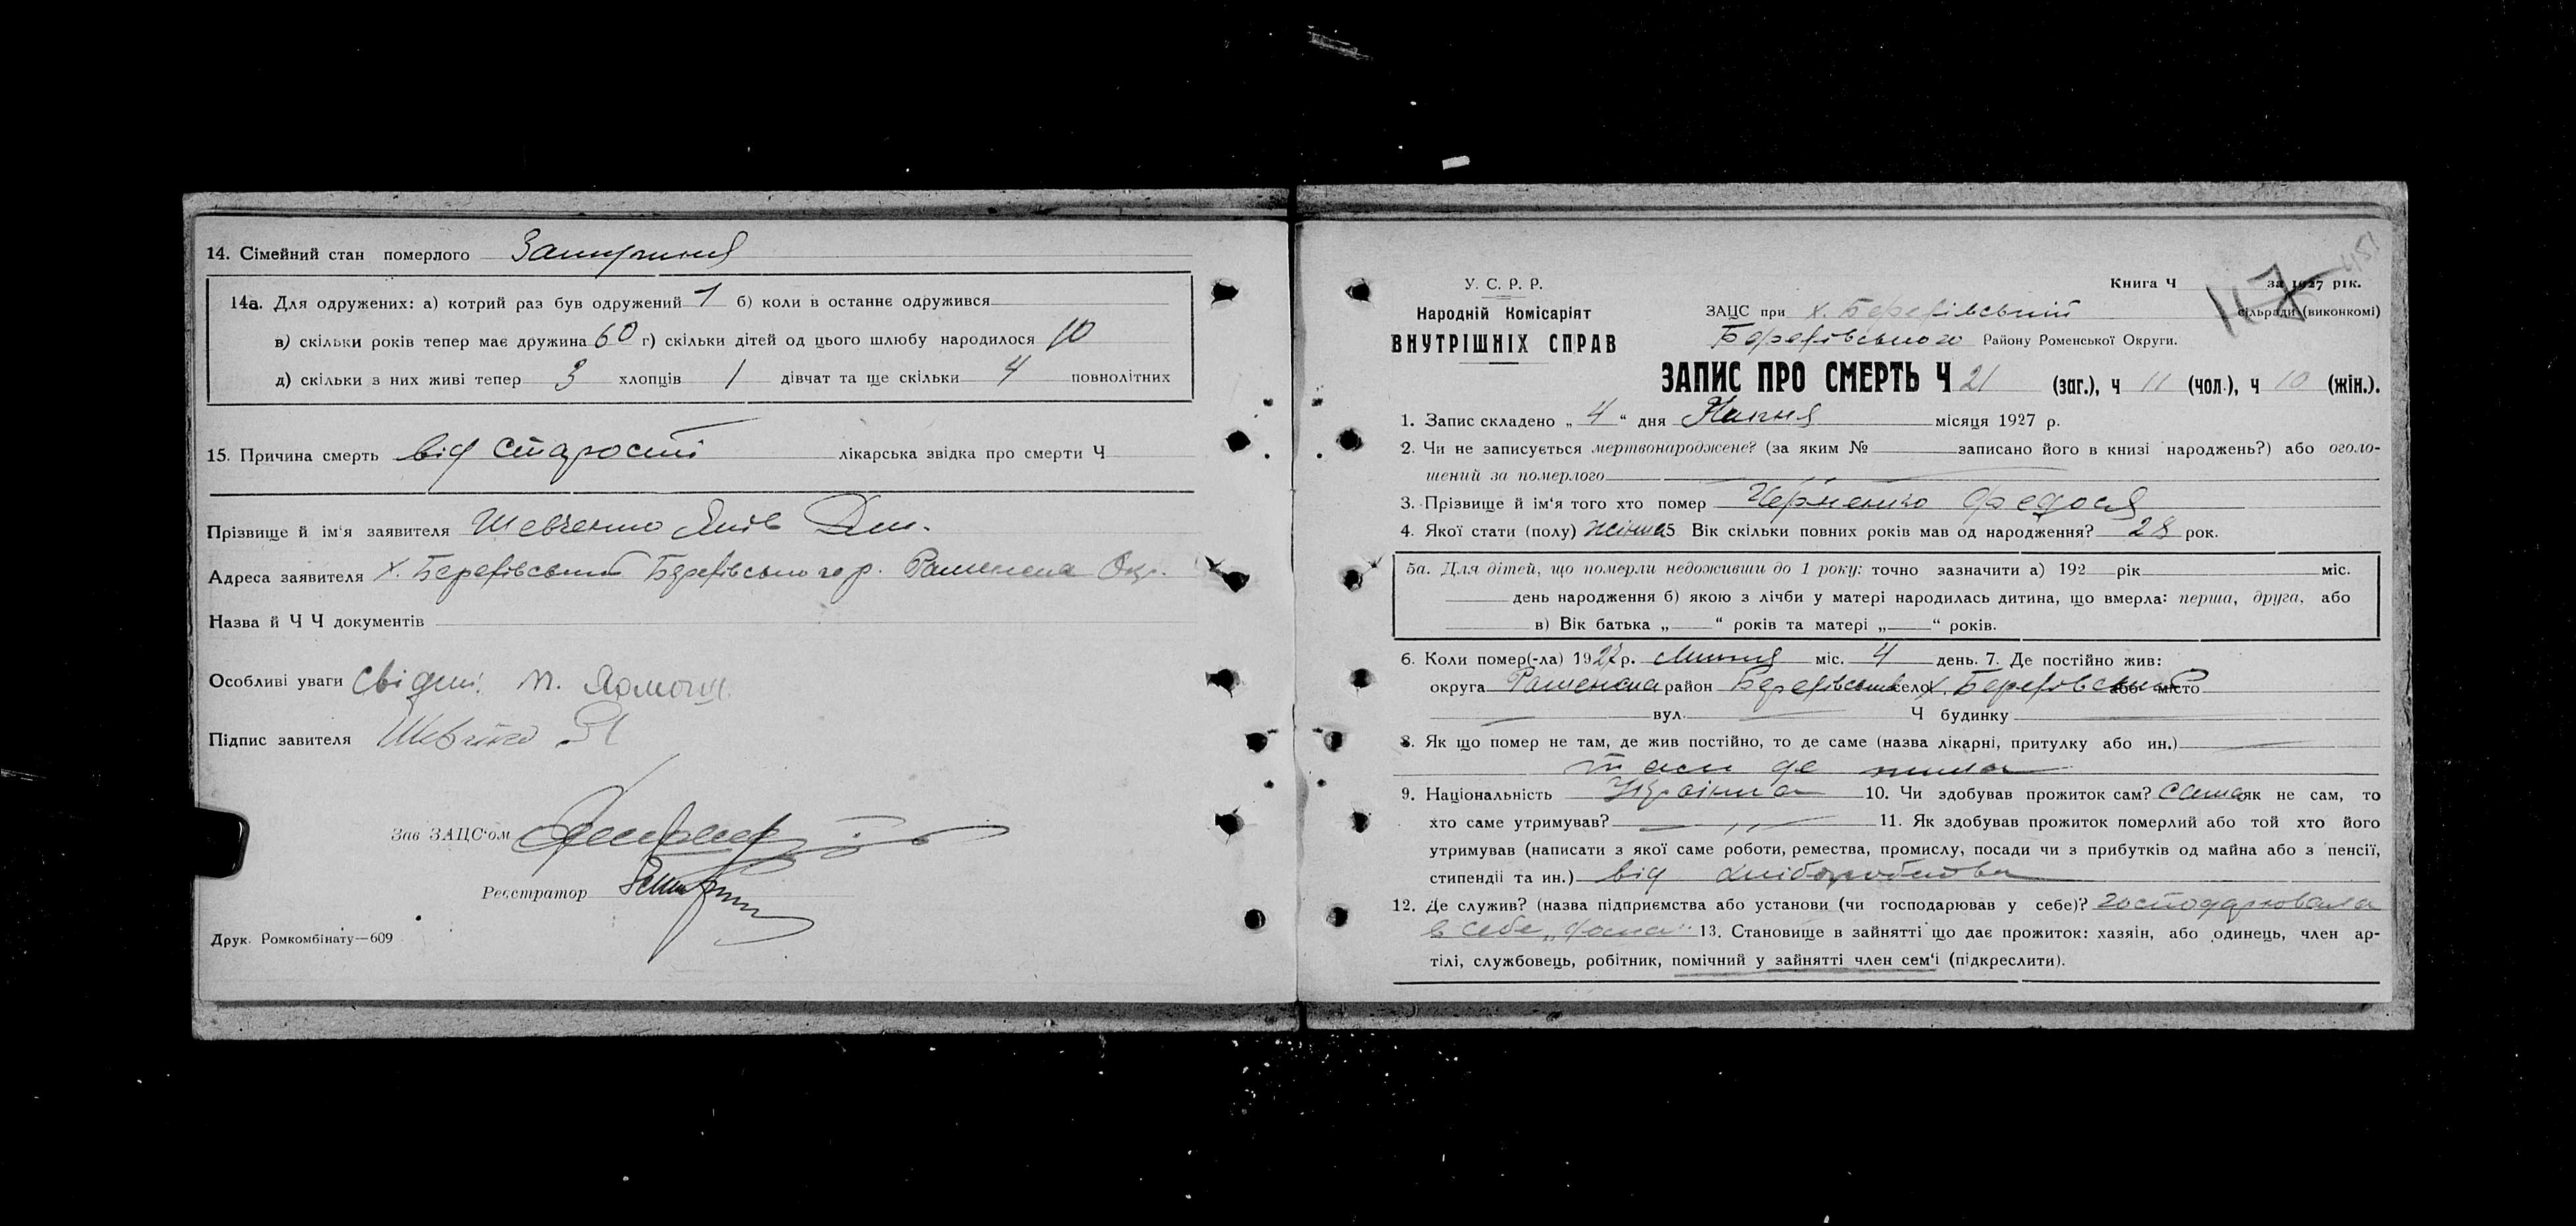 14. Сімейний стан померлого
14а. Для одружених: а) котрий раз був одружений 1 б) коли в останнє одружився
в) скільки років тепер має дружина 60 г) скільки дітей од цього шлюбу народилося 10
д) скільки з них живі тепер 3 хлопців 1 дівчат та ще скільки 4 повнолітних
15. Причина смерть від старості лікарська звідка про смерти Ч
Прізвище й ім'я заявителя Шевченко Яків
Адреса заявителя х. Березівський Березівського р. Роменська Окр.
Назва й Ч Ч документів
Особливі уваги свідки
Підпис завителя
Зав ЗАЦС'ом
Реєстратор
Друк. Ромкомбінату—609
У. С. Р. Р.
Народній Комісаріят
ВНУТРІШНІХ СПРАВ
Книга Ч за 1927 рік.
ЗАЦС при х. Березівський сільради (виконкомі)
Березівського Району Роменської Округи.
ЗАПИС ПРО СМЕРТЬ Ч 21 (заг.), ч 11 (чол.), ч 10 (жін.).
1. Запис складено „ 4 “ дня Липня місяця 1927 р.
2. Чи не записується мертвонароджене? (за яким № записано його в книзі народжень?) або оголо-
шений за померлого
3. Прізвище й ім'я того хто помер Черненко Федося
4. Якої стати (полу) жінка 5 Вік скільки повних років мав од народження? 28 рок.
5а. Для дітей, що померли недоживши до 1 року: точно зазначити а) 192 рік міс.
день народження б) якою з лічби у матері народилась дитина, що вмерла: перша, друга, або
в) Вік батька „ “ років та матері „ “ років.
6. Коли помер(-ла) 1927 р. Липня міс. 4 день. 7. Де постійно жив:
округа Роменська район Березівський село х. Березівський або місто
вул. Ч будинку
8. Як що помер не там, де жив постійно, то де саме (назва лікарні, притулку або ин.)
там де жила
9. Національність Українка 10. Чи здобував прожиток сам? сама як не сам, то
хто саме утримував? 11. Як здобував прожиток померлий або той хто його
утримував (написати з якої саме роботи, ремества, промислу, посади чи з прибутків од майна або з пенсії,
стипендії та ин.) від хліборобства
12. Де служив? (назва підприємства або установи (чи господарював у себе)? господарювала
в себе „дома“ 13. Становище в зайнятті що дає прожиток: хазяїн, або одинець, член ар-
тілі, службовець, робітник, помічний у зайнятті член сем'ї (підкреслити).